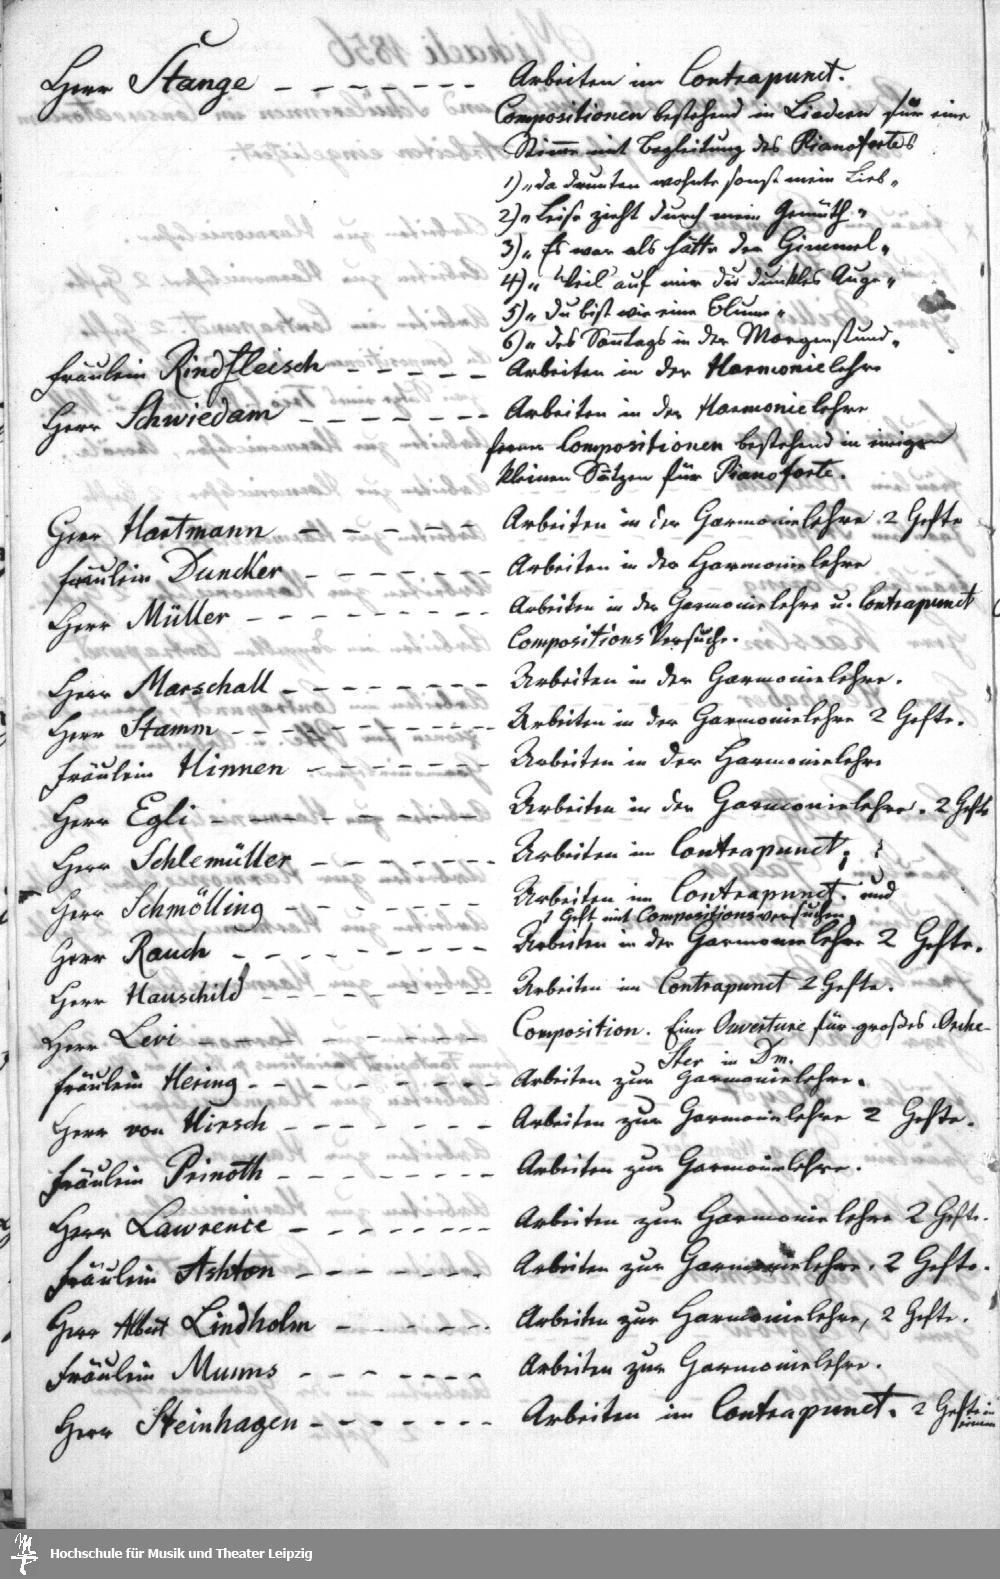 Herr Stange - - - - - - - Arbeiten im Contrapunct.
Compositionen bestehend in Liedern für eine
Stimme mit Begleitung des Pianofortes
1) „Da drunten wohnte sonst mein Lieb„
2) „Leise zieht durch mein Gemüth„
3) „Es war als hätte der Himmel„
4) „Weil' auf mir du dunkles Auge„
5) „Du bist wie eine Blume„
6) „Des Sonntags in der Morgenstund„
Fräulein Rindfleisch - - - - - Arbeiten in der Harmonielehre
Herr Schwiedam - - - - - - - Arbeiten in der Harmonielehre
ferner Compositionen bestehend in einigen
kleinen Sätzen für Pianoforte.
Herr Hartmann - - - - - - Arbeiten in der Harmonielehre 2 Hefte
Fräulein Duncker - - - - - - - Arbeiten in der Harmonielehre
Herr Müller - - - - - - - - - Arbeiten in der Harmonielehre u. Contrapunct
Compositions Versuche.
Herr Marschall - - - - - - - - Arbeiten in der Harmonielehre.
Herr Stamm - - - - - - - - - Arbeiten in der Harmonielehre 2 Hefte.
Fräulein Hinnen - - - - - - - Arbeiten in der Harmonielehre
Herr Egli - - - - - - - - - Arbeiten in der Harmonielehre. 2 Hefte
Herr Schlemüller - - - - - - - Arbeiten im Contrapunct.
Herr Schmölling - - - - - - - Arbeiten im Contrapunct. und
1 Heft mit Compositionsversuchen
Herr Rauch - - - - - - - - Arbeiten in der Harmonielehre 2 Hefte.
Herr Hauschild - - - - - - - - Arbeiten im Contrapunct 2 Hefte.
Herr Levi - - - - - - - - - Composition. Eine Ouverture für großes Orche-
ster in Dm.
Fräulein Hering - - - - - - - - Arbeiten zur Harmonielehre.
Herr von Hirsch - - - - - - - Arbeiten zur Harmonielehre 2 Hefte.
Fräulein Prinoth - - - - - - - - Arbeiten zur Harmonielehre.
Herr Lawrence - - - - - - - - Arbeiten zur Harmonielehre 2 Hefte.
Fräulein Ashton - - - - - - - Arbeiten zur Harmonielehre. 2 Hefte.
Herr Albert Lindholm - - - - - - Arbeiten zur Harmonielehre, 2 Hefte.
Fräulein Munns - - - - - - - Arbeiten zur Harmonielehre.
Herr Steinhagen - - - - - - - Arbeiten im Contrapunct. 2 Hefte in
einem
Hochschule für Musik und Theater Leipzig